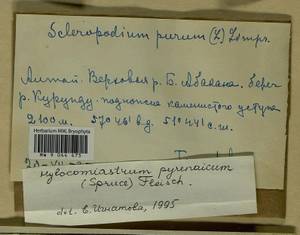 Scleropodium purum (L) Limpr.
Алтай. Верховья р. Б. Абакана. берег
р. Курунду: подножие каменистого уступа
2100 м. 57°46' в.д. 51°41' с.ш.
Herbarium MW, Bryophyta
MW 9 044 475
Hylocomiastrum pyrenaicum
(Spruce) Fleisch.
det. Е. Игнатова, 1995